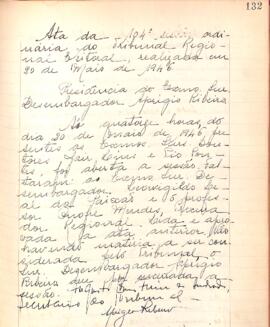 132
Ata da 184ª sessão ordi-
nária, do Tribunal Regio-
nal Eleitoral, realizada em
20 de Maio de 1946
Presidencia do Exmo. Snr.
Desembargador Aprigio Ribeiro
Às quatorze horas, do
dia 20 de maio de 1946, pre-
sentes os Exmos. Snrs. Dou-
tores
foi aberta a sessão. Fal-
taram os Exmos. Snr. De-
sembargador
e o profes-
sor Onofre Mendes, Procura-
dor Regional. Lida e apro-
vada a ata anterior. Não
havendo matéria a ser con-
siderada pelo Tribunal, o
Snr. Desembargador Aprigio
Ribeiro deu por encerrada a
sessão.
Secretário do Tribunal
Aprigio Ribeiro